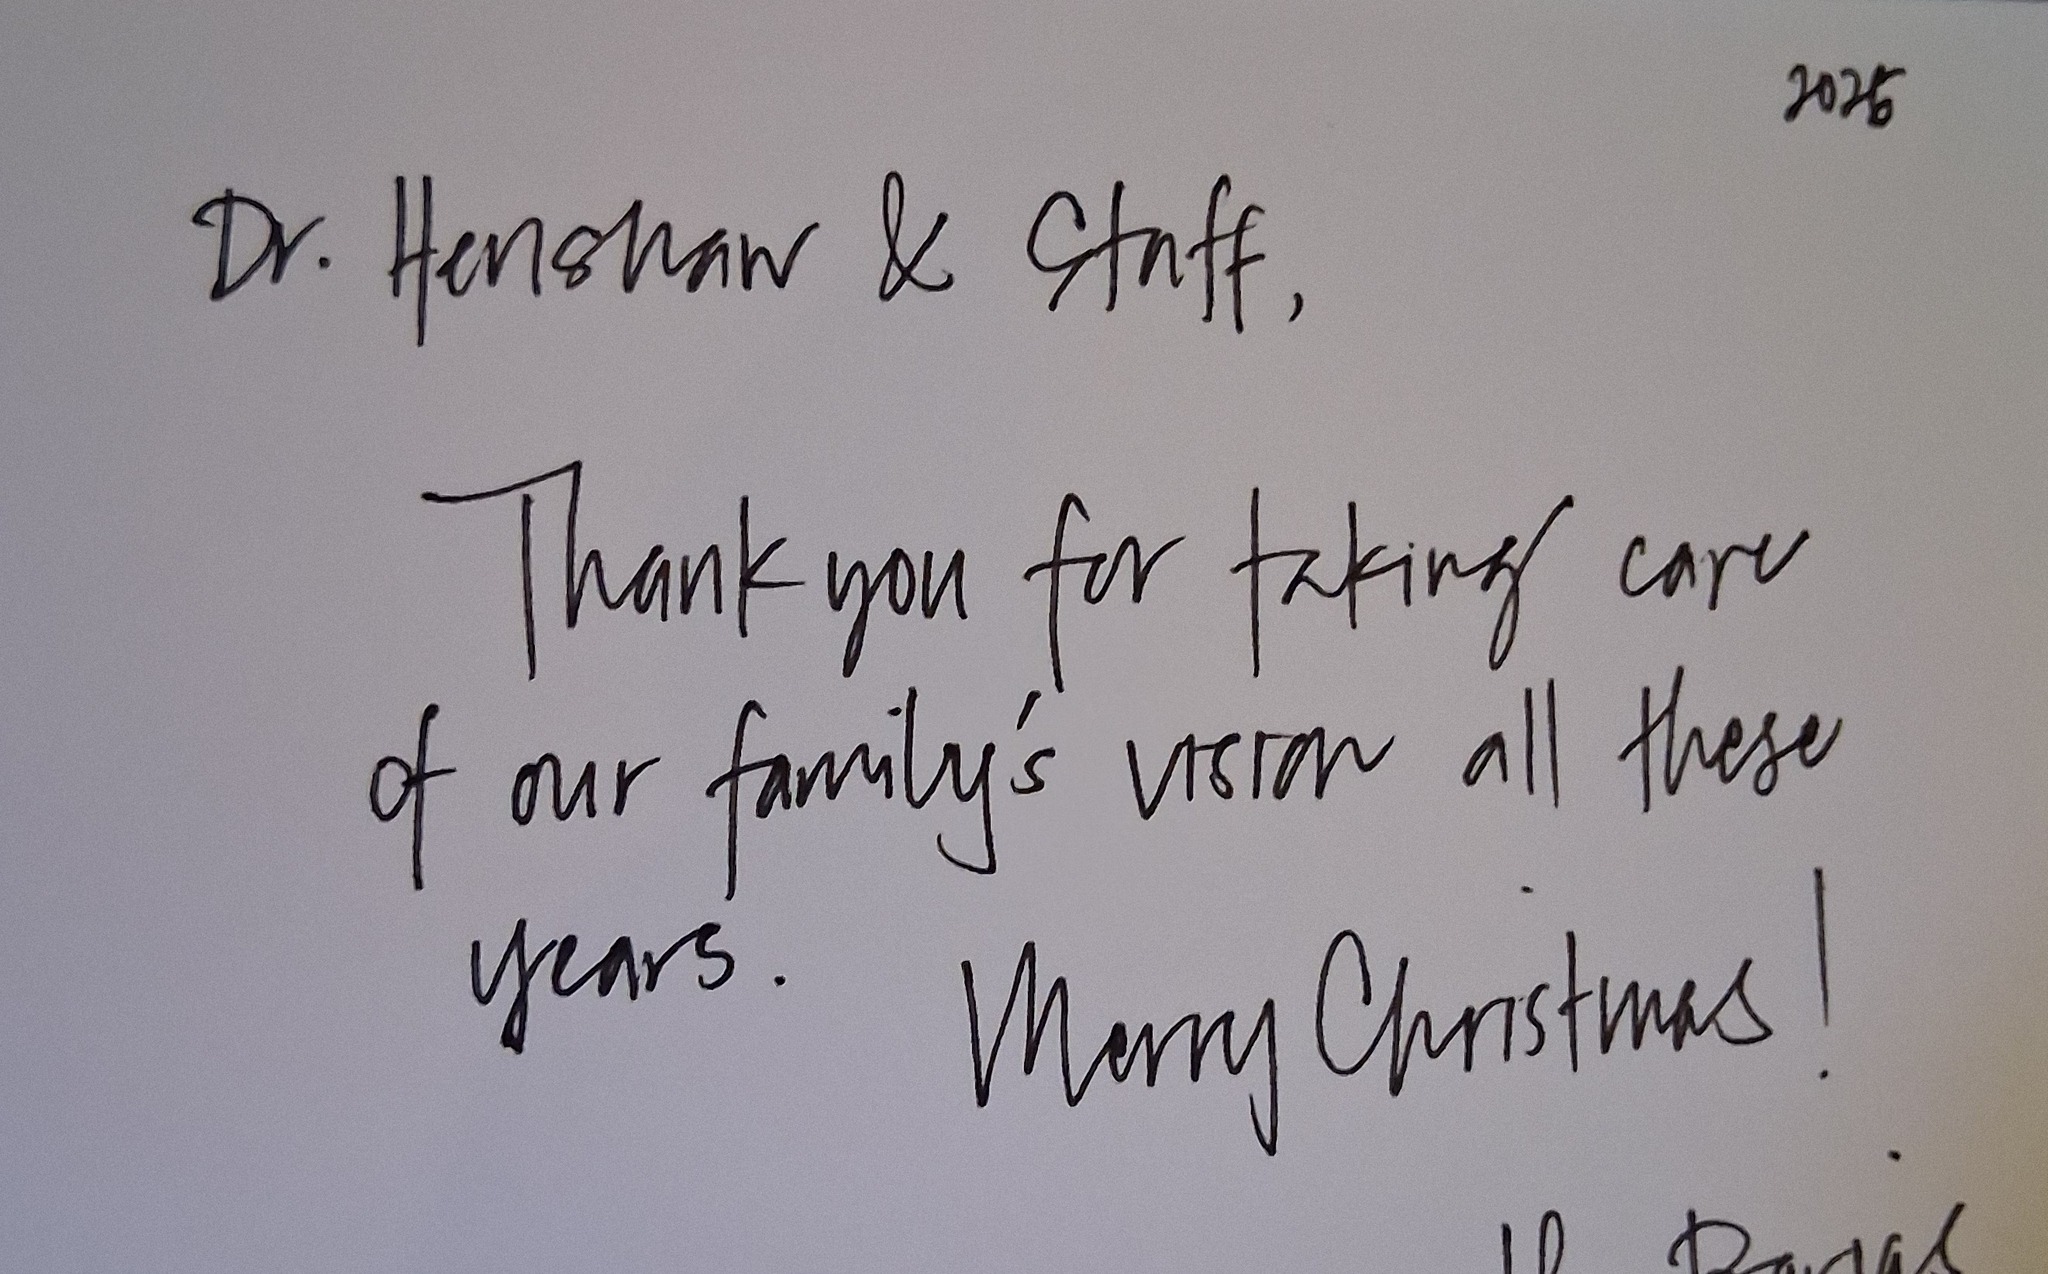 2025
Dr. Henshaw & Staff,
Thank you for taking care
of our family's vision all these
years.
Merry Christmas!